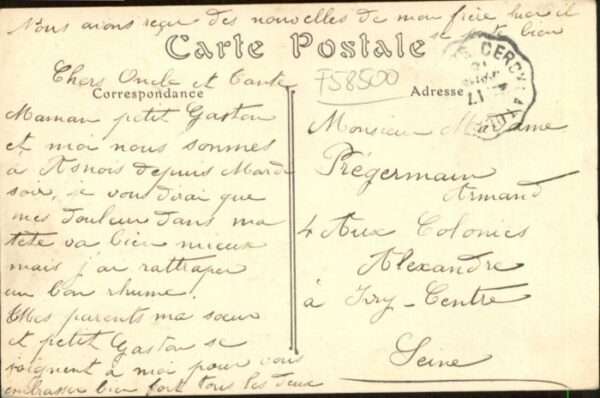 Nous avions reçu des nouvelles de mon frère hier il
se porte bien
Carte Postale
Chers Oncle et Tante
Correspondance
F58500
Adresse
CERCY
17
Maman petit Gaston
et moi nous sommes
à Asnois depuis Mardi
soir, je vous dirai que
mes douleur dans ma
tête va bien mieux
mais j'ai rattraper
un bon rhume.
Mes parents ma sœur
et petit Gaston se
joignent à moi pour vous
embrasser bien fort tous les deux
Monsieur Madame
Prégermain
Armand
4 Aux Colonies
Alexandre
à Ivry-Centre
Seine